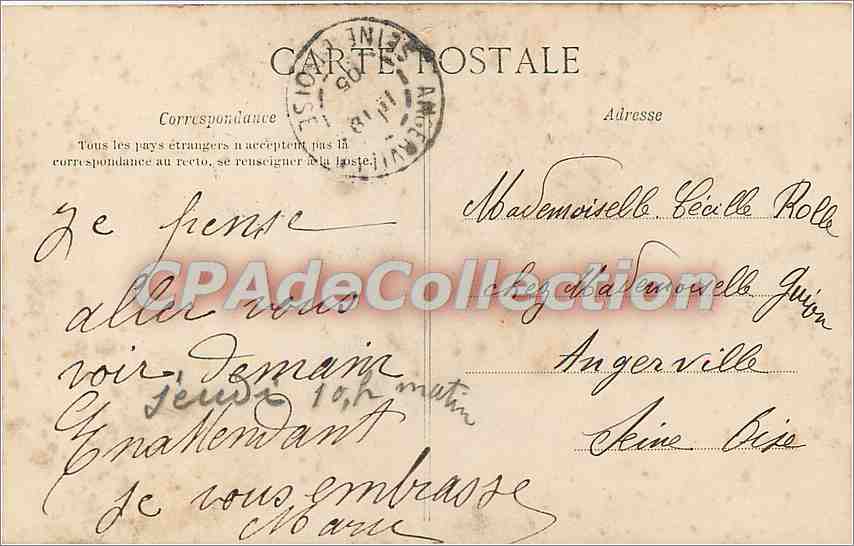 CARTE POSTALE
Correspondance
Tous les pays étrangers n'acceptent pas la
correspondance au recto, se renseigner à la Poste.)
Je pense
aller vous
voir, demain
jeudi 10,h matin
En attendant
je vous embrasse
Marie
Adresse
Mademoiselle Cécille Rolle
chez Mademoiselle Guion
Angerville
Seine Oise
SEINE & OISE
CPAdeCollection.com